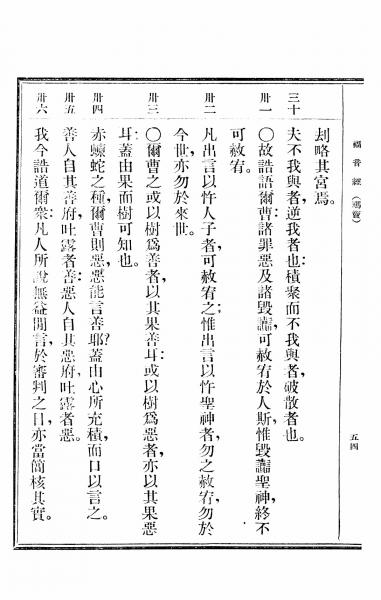 福音經（瑪竇）
五四
刦略其宮焉。
三十 夫不我與者，逆我者也；積聚而不我與者，破散者也。
卅一 〇故誥語爾曹：諸罪惡及諸毀讟，可赦宥於人斯，惟毀讟聖神，終不
可赦宥。
卅二 凡出言以忤人子者，可赦宥之；惟出言以忤聖神者，勿之赦宥，勿於
今世，亦勿於來世。
卅三 〇爾曹之或以樹爲善者，以其果善耳；或以樹爲惡者，亦以其果惡
耳；蓋由果而樹可知也。
卅四 赤蠊蛇之種，爾曹則惡，惡能言善耶？蓋由心所充積，而口以言之。
卅五 善人自其善府，吐露者善；惡人自其惡府，吐露者惡。
卅六 我今誥道爾衆：凡人所說無益閒言，於審判之日，亦當簡核其實。